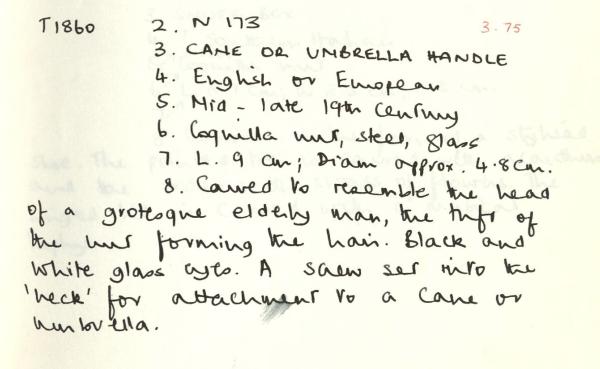 T1860 2. N 173 3.75
3. CANE OR UMBRELLA HANDLE
4. English or European
5. Mid - late 19th century
6. Coquilla nut, steel, glass
7. L. 9 cm; Diam approx. 4.8cm.
8. Carved to resemble the head
of a grotesque elderly man, the tuft of
the nut forming the hair. Black and
white glass eyes. A screw set into the
'neck' for attachment to a cane or
umbrella.